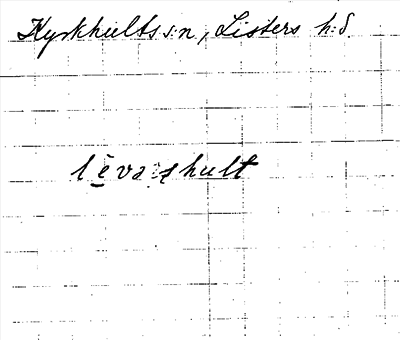 Kyrkhults s:n, Listers h:d
levas:hult